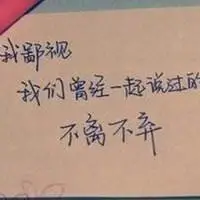 我鄙视
我们曾经一起说过的
不离不弃